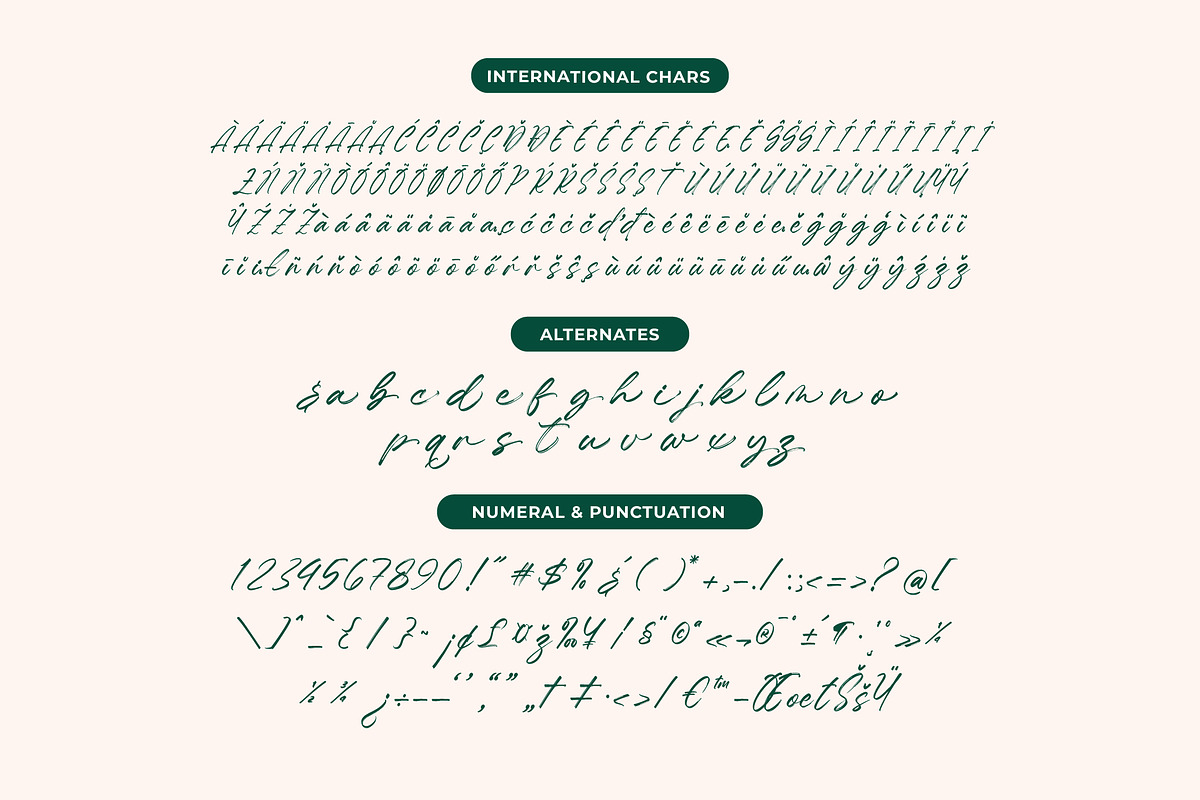 INTERNATIONAL CHARS
ÀÁÃÄȦĀÅĄĆĈĊČÇĎĐÈÉÊËĒĚĖĘĔĜĞĠÌÍÎÏÑĪĬĮİ
ŁŃŇÑÒÓÔÕÖØŌŎŐÞŔŘŠŚŜŞŤÙÚÛÜŨŪŬŮŰŲŸÝ
ŶŹŻŽàáâãäȧāåąçćĉċčďđèéêëēěėęĕĝğġģìíîïĩ
īĭįłñńňòóôõöōŏőŕřšŝşùúûüũūŭůűųŵýÿŷźżž
ALTERNATES
&abcdefghijklmno
pqrstuvwxyz
NUMERAL & PUNCTUATION
1234567890!"#$%&'()*+,-./:;<=>?@[
\]^_`{|}~¡¢£¤ž‰¥¦§¨©ª«¬®¯°±´¶·¸¹º»¼
½¾¿÷–—‘’‚“”„†‡•‹›⁄€™−ŒœtŠšŸ